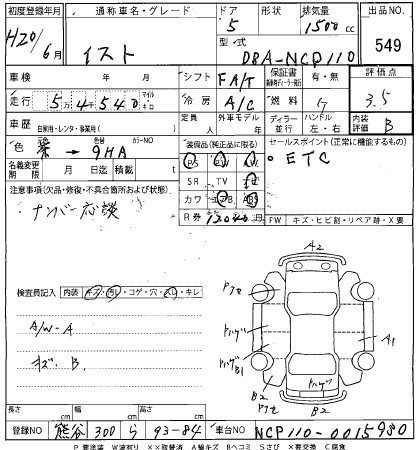 初度登録年月 通称車名・グレード ドア 形状 排気量 出品NO
H20/6月 イスト 5 1500cc 549
型・式 DBA-NCP110
車検 年 月 シフト FA/T 保証書 有・無 評価点
走行 5万4千540 マイル キロ 冷房 A/C 燃料 G 3.5
車歴 自家用・レンタ・事業用( ) 定員 人 外車モデル 年 ディーラー 並行 ハンドル 左・右 内装評価 B
色 →9HA 色替 カラーNO 装備品(純正品に限る) セールスポイント(正常に機能するもの)
名義変更期限 月 日迄 積載 t PS AW ・ETC
注意事項(欠品・修復・不具合箇所および状態) SR TV
ナンバー応談 カワ ナビ AB
R券 円 FW キズ・ヒビ割・リペア跡・X要
検査員記入 内装 キズ・汚れ・コゲ・穴・スレ・キレ
A/W-A
キズ、B.
A2
Pアセ Pアセ
Pハゲ A1
Pハゲ B1
B2 Pアセ Pハゲ B2
長さ cm 幅 cm 高さ cm
登録NO 熊谷 300 ら 93-84 車台NO NCP110-0015980
P 要塗装 W波有り ××取替済 A線キズ Bヘコミ Sさび ×要交換 C腐食